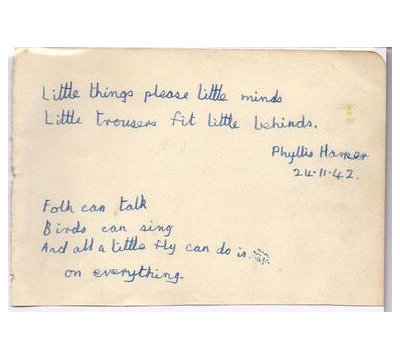 Little things please little minds
Little trousers fit little behinds.
Phyllis
24.11.42.
Folk can talk
Birds can sing
And all a little fly can do is
on everything.